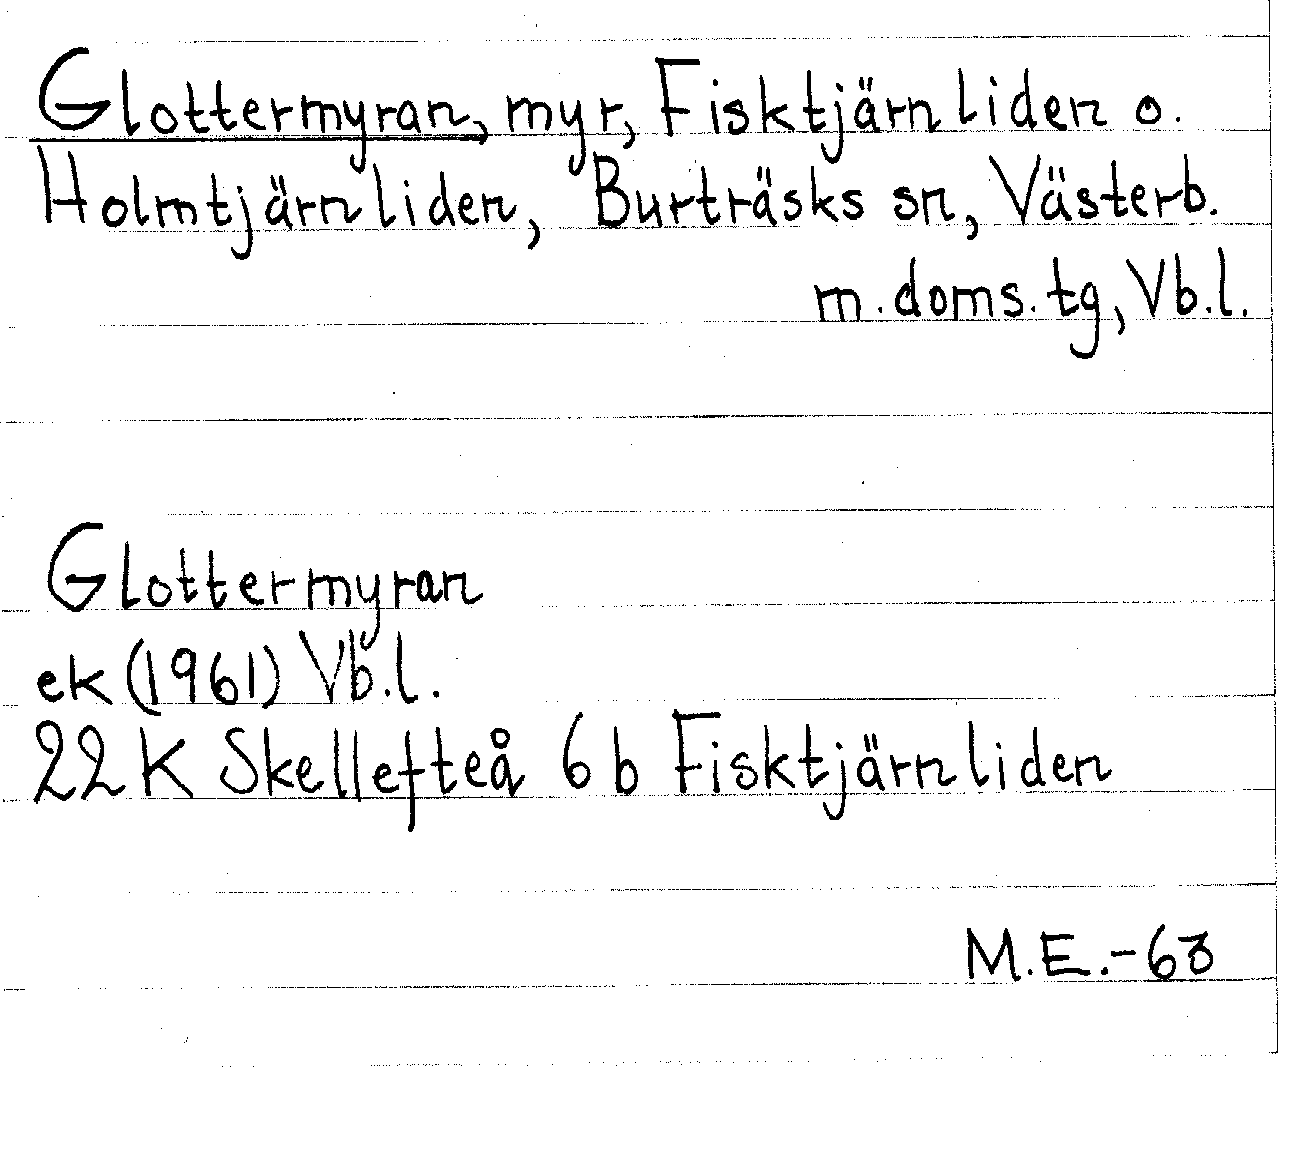 Glottermyran, myr, Fisktjärnliden o.
Holmtjärnliden, Burträsks sn, Västerb.
m.doms.tg, Vb.l.
Glottermyran
ek (1961) Vb.l.
22K Skellefteå 6b Fisktjärnliden
M.E.-63